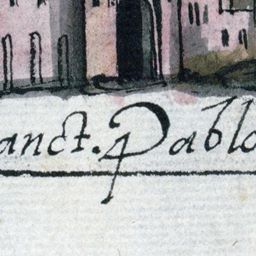 anct. Pablo